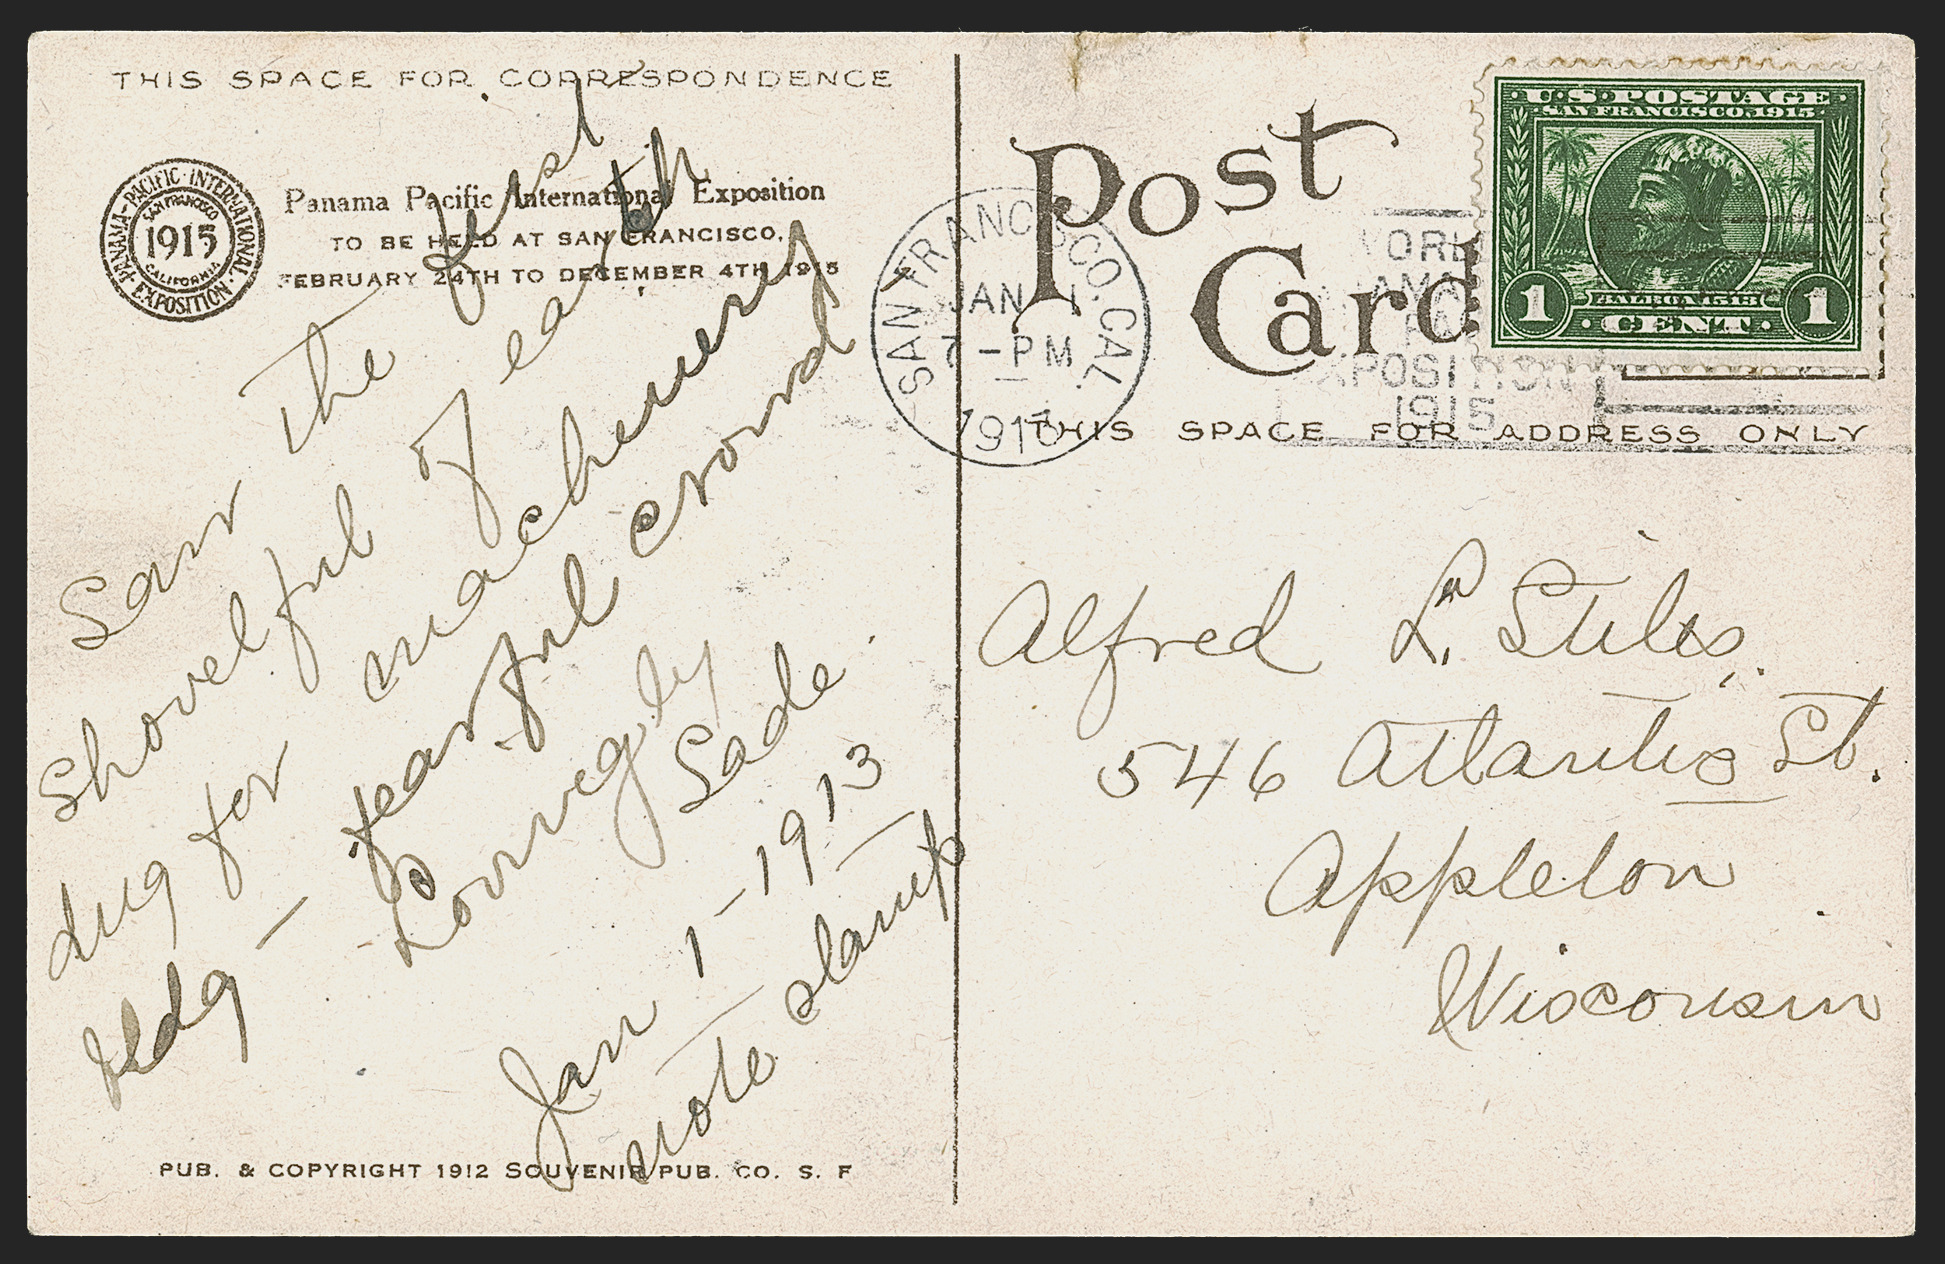 THIS SPACE FOR CORRESPONDENCE
PANAMA-PACIFIC-INTERNATIONAL
EXPOSITION
SAN FRANCISCO
1915
CALIFORNIA
Panama Pacific International Exposition
TO BE HELD AT SAN FRANCISCO,
FEBRUARY 24TH TO DECEMBER 4TH 1915
Saw the first
shovelful of earth
dug for machinery
bldg — fearful crowd
Lovingly
Sade
Jan 1-1913
note stamp
PUB. & COPYRIGHT 1912 SOUVENIR PUB. CO. S. F
Post
Card
SAN FRANCISCO, CAL.
JAN 1
7-PM
1913
EXPOSITION
1915
U·S·POSTAGE
SAN FRANCISCO·1915
BALBOA 1513
1 CENT 1
THIS SPACE FOR ADDRESS ONLY
Alfred L. Stiles.
546 Atlantic St.
Appleton
Wisconsin